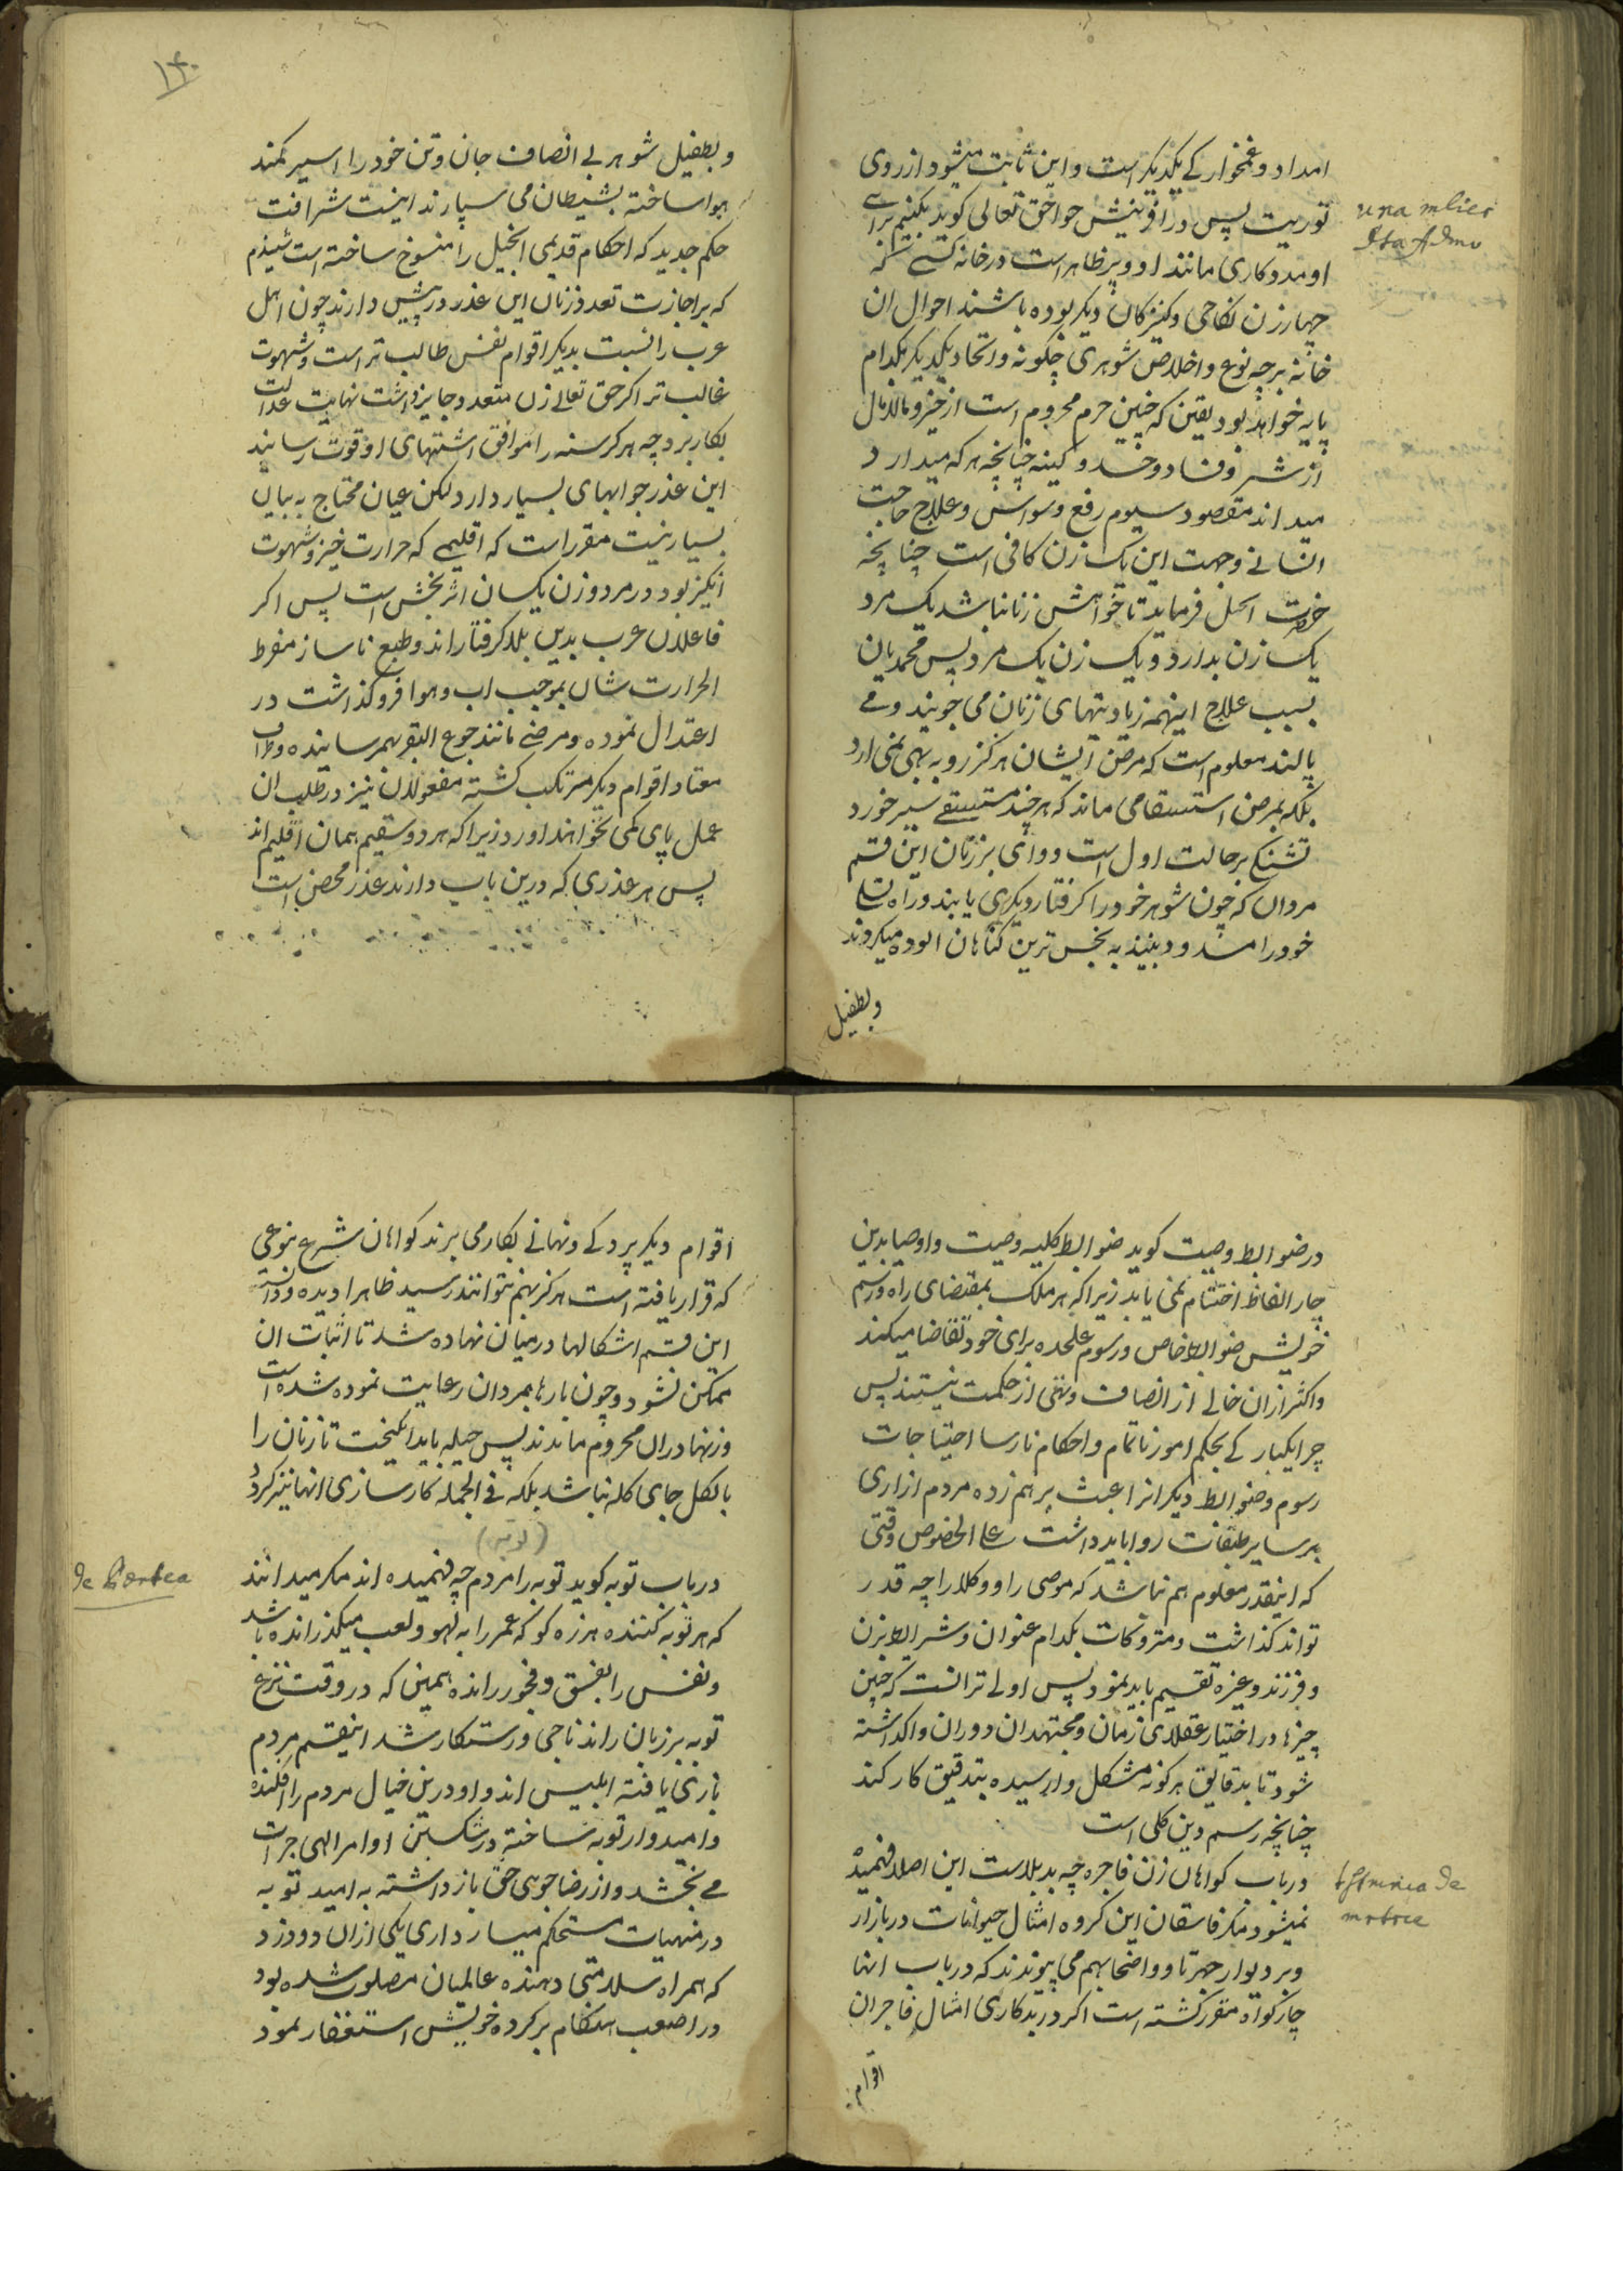 امداد و غمخوارکی یکدیکر است و این ثابت میشود از روی
توریت پس در آفرینش حوا حق تعالی کوید بکنیم برای
او مددکاری مانند او و پر ظاهر است در خانه کسی که
چهار زن نکاحی و کنیزکان دیکر بوده باشند احوال ان
خانه برچه نوع و اخلاص شوهری چکونه و اتحاد یکدیکر بکدام
پایه خواهد بود یقین که چنین حرم محروم است از خیر و مالامال
از شر و فساد و حسد و کینه چنانچه هر که میدارد
میداند مقصود سیوم رفع وسواس و علاج حاجت
انسانی و جهت این یک زن کافی است چنانچه
حضرت انجیل فرماید تا خواهش زنا نباشد یک مرد
یک زن بدارد و یک زن یک مرد پس محمدیان
بسبب علاج اینهمه زیادتیهای زنان می جویند و می
پالند معلوم است که مرض ایشان هرکز رو به بهی نمی ارد
بلکه بمرض استسقا می ماند که هرچند مستسقی سیر خورد
تشنکی برحالت اول است و وای بر زنان این قسم
مردان که چون شوهر خود را کرفتار دیکری یابند و راه تسلی
خود را مسدود بینند به نجس ترین کناهان الوده میکردند
وبطفیل
una mlier
dta Admo
۱۴۰
وبطفیل شوهر بی انصاف جان و تن خود را اسیر کمند
هوا ساخته بشیطان می سپارند اینست شرافت
حکم جدید که احکام قدیمی انجیل را منسوخ ساخته است شنیدم
که بر اجازت تعدد زنان این عذر در پیش دارند چون اهل
عرب را نسبت بدیکر اقوام نفس طالب تر است و شهوت
غالب تر اکر حق تعالی زن متعدد جایز داشت نهایت عدالت
بکار برد چه هر کرسنه را موافق اشتهای او قوت رسانید
این عذر جوابهای بسیار دارد لکن عیان محتاج به بیان
بسیار نیست مقرر است که اقلیمی که حرارت خیز و شهوت
انکیز بود در مرد و زن یکسان اثر بخش است پس اکر
فاعلان عرب بدین بلا کرفتار اند و طبع ناساز مفرط
الحرارت شان بموجب اب و هوا فروکذاشت در
اعتدال نموده و مرضی مانند جوع البقر بهمرسانیده
معتاد اقوام دیکر مرتکب کشته مفعولان نیز در طلب ان
عمل پای کمی نخواهند اورد زیرا که هر دو سقیم همان اقلیم اند
پس هر عذری که درین باب دارند عذر محض است
در ضوابط وصیت کوید ضوابط کلیه وصیت و اوصیا بدین
چار الفاظ اختتام نمی یابد زیرا که هر ملک بمقتضای راه و رسم
خویش ضوابط خاص و رسوم علیحده برای خود تقاضا میکند
و اکثر ازان خالی از انصاف و تهی از حکمت نیستند پس
چرا یکبارکی بحکم امور ناتمام و احکام نارسا احتیاجات
رسوم و ضوابط دیکرانرا عبث برهم زده مردم ازاری
بر سایر طبقات روا باید داشت علی الخصوص وقتی
که اینقدر معلوم هم نباشد که موصی را و وکلا را چه قدر
تواند کذاشت و متروکات بکدام عنوان و شرایط بزن
و فرزند و غیره تقسیم باید نمود پس اولی تر انست که چنین
چیزها در اختیار عقلای زمان و مجتهدان دوران واکذاشته
شود تا بدقایق هر کونه مشکل وارسیده بتدقیق کار کند
چنانچه رسم دین کلی است
در باب کواهان زن فاجره چه بد بلاست این اصلا فهمیده
نمیشود مکر فاسقان این کروه امثال حیوانات در بازار
و بر دیوار جهرتا و واضحا بهم می پیوندند که در باب انها
چار کواه مقرر کشته است اکر در بدکاری امثال فاجران
اقوام
اقوام دیکر پردکی و نهانی بکار می برند کواهان شرع بنوعی
که قرار یافته است هرکز بهم نتوانند رسید ظاهرا دیده و دانسته
این قسم اشکالها در میان نهاده شد تا اثبات ان
ممکن نشود و چون بارها بمردان رعایت نموده شده است
و زنها دران محروم ماندند پس حیله باید انکیخت تا زنان را
بالکل جای کله نباشد بلکه فی الجمله کارسازی انها نیز کردد
(توبه)
در باب توبه کوید توبه را مردم چه فهمیده اند مکر میدانند
که هر توبه کننده هرزه کو که عمر را به لهو و لعب میکذرانده باشد
و نفس را بفسق و فجور رانده همین که در وقت نزع
توبه بر زبان راند ناجی و رستکار شد اینقسم مردم
بازی یافته ابلیس اند و او درین خیال مردم را افکنده
و امیدوار توبه ساخته در شکستن اوامر الهی جرات
می بخشد و از رضا جوهی حق باز داشته به امید توبه
در منهیات مستحکم میسازد اری یکی ازان دو دزد
که همراه سلامتی دهنده عالمیان مصلوب شده بود
در اصعب هنکام بر کرده خویش استغفار نمود